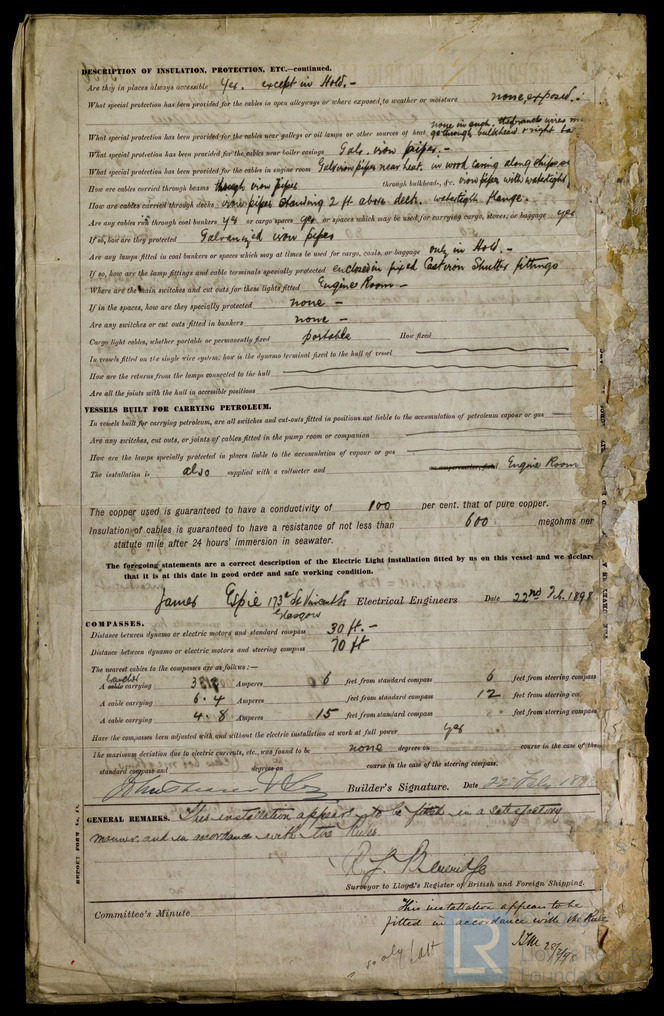 DESCRIPTION OF INSULATION, PROTECTION, ETC.—continued.
Are they in places always accessible Yes. except in Hold.—
What special protection has been provided for the cables in open alleyways or where exposed to weather or moisture none exposed.
none in such, the branch wires
What special protection has been provided for the cables near galleys or oil lamps or other sources of heat go through bulkhead
What special protection has been provided for the cables near boiler casings Galv. iron pipes.—
What special protection has been provided for the cables in engine room Galv iron pipes near heat, in wood casing along ships
How are cables carried through beams through iron pipes through bulkheads, &c. iron pipes with watertight
How are cables carried through decks iron pipes standing 2 ft above deck. watertight flange.
Are any cables run through coal bunkers yes or cargo spaces yes or spaces which may be used for carrying cargo, stores, or baggage yes
If so, how are they protected Galvanized iron pipes
Are any lamps fitted in coal bunkers or spaces which may at times be used for cargo, coals, or baggage only in Hold.—
If so, how are the lamp fittings and cable terminals specially protected enclosed in fixed Cast iron Shutter fittings
Where are the main switches and cut outs for these lights fitted Engine Room —
If in the spaces, how are they specially protected none —
Are any switches or cut outs fitted in bunkers none —
Cargo light cables, whether portable or permanently fixed portable How fixed
In vessels fitted on the single wire system, how is the dynamo terminal fixed to the hull of vessel
How are the returns from the lamps connected to the hull
Are all the joints with the hull in accessible positions
VESSELS BUILT FOR CARRYING PETROLEUM.
In vessels built for carrying petroleum, are all switches and cut-outs fitted in positions not liable to the accumulation of petroleum vapour or gas
Are any switches, cut outs, or joints of cables fitted in the pump room or companion
How are the lamps specially protected in places liable to the accumulation of vapour or gas
The installation is also supplied with a voltmeter and Engine Room
The copper used is guaranteed to have a conductivity of 100 per cent. that of pure copper.
Insulation of cables is guaranteed to have a resistance of not less than 600 megohms per
statute mile after 24 hours' immersion in seawater.
The foregoing statements are a correct description of the Electric Light installation fitted by us on this vessel and we declare
that it is at this date in good order and safe working condition.
James Espie 173a St Vincent St Electrical Engineers Date 22nd Feb. 1898
Glasgow
COMPASSES.
Distance between dynamo or electric motors and standard compass 30 ft.—
Distance between dynamo or electric motors and steering compass 70 ft
The nearest cables to the compasses are as follows:—
A cable carrying Amperes 6 feet from standard compass 6 feet from steering compass
A cable carrying 6.4 Amperes feet from standard compass 12 feet from steering com
A cable carrying 4.8 Amperes 15 feet from standard compass feet from steering compass
Have the compasses been adjusted with and without the electric installation at work at full power yes
The maximum deviation due to electric currents, etc., was found to be none degrees on course in the case of the
standard compass and degrees on course in the case of the steering compass.
Builder's Signature. Date 22 Feby 1898
GENERAL REMARKS. This installation appears to be fitted in a satisfactory
manner and in accordance with the Rules
R. J. Beveridge
Surveyor to Lloyd's Register of British and Foreign Shipping.
Committee's Minute
This installation appears to be
fitted in accordance with the Rules
28/2/98
REPORT FORM No. 17.
LR
Lloyd's Register
Foundation